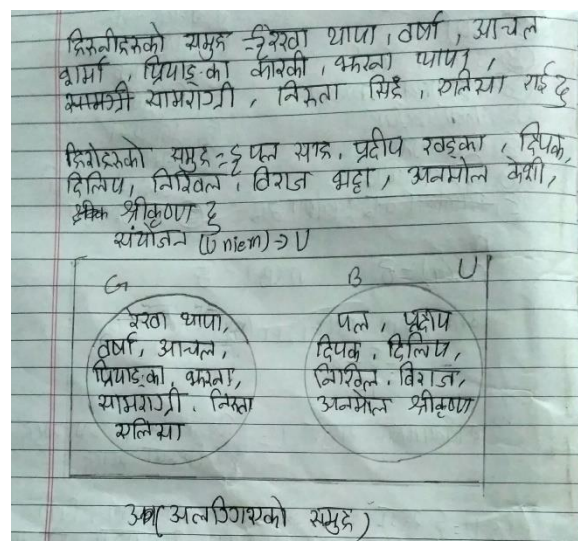 हिरुनीहरुको समुह = { रेखा थापा, वर्षा, आचल
शर्मा, प्रियाङ्का कार्की, झरना थापा,
सामग्री सामराग्री, निरुता सिंह, एलिसा राई }
हिरोहरुको समुह = { पल साह, प्रदीप खड्का, दिपक,
दिलिप, निखिल, विराज भट्टा, अनमोल केसी,
श्रीकृष्ण }
संयोजन (Uniem) → U
G B U
रेखा थापा,
वर्षा, आचल,
प्रियाङका, झरना,
सामराग्री, निरुता
एलिसा
पल, प्रदीप
दिपक, दिलिप,
निखिल, विराज,
अनमोल श्रीकृष्ण
(अलग्गिएको समुह)